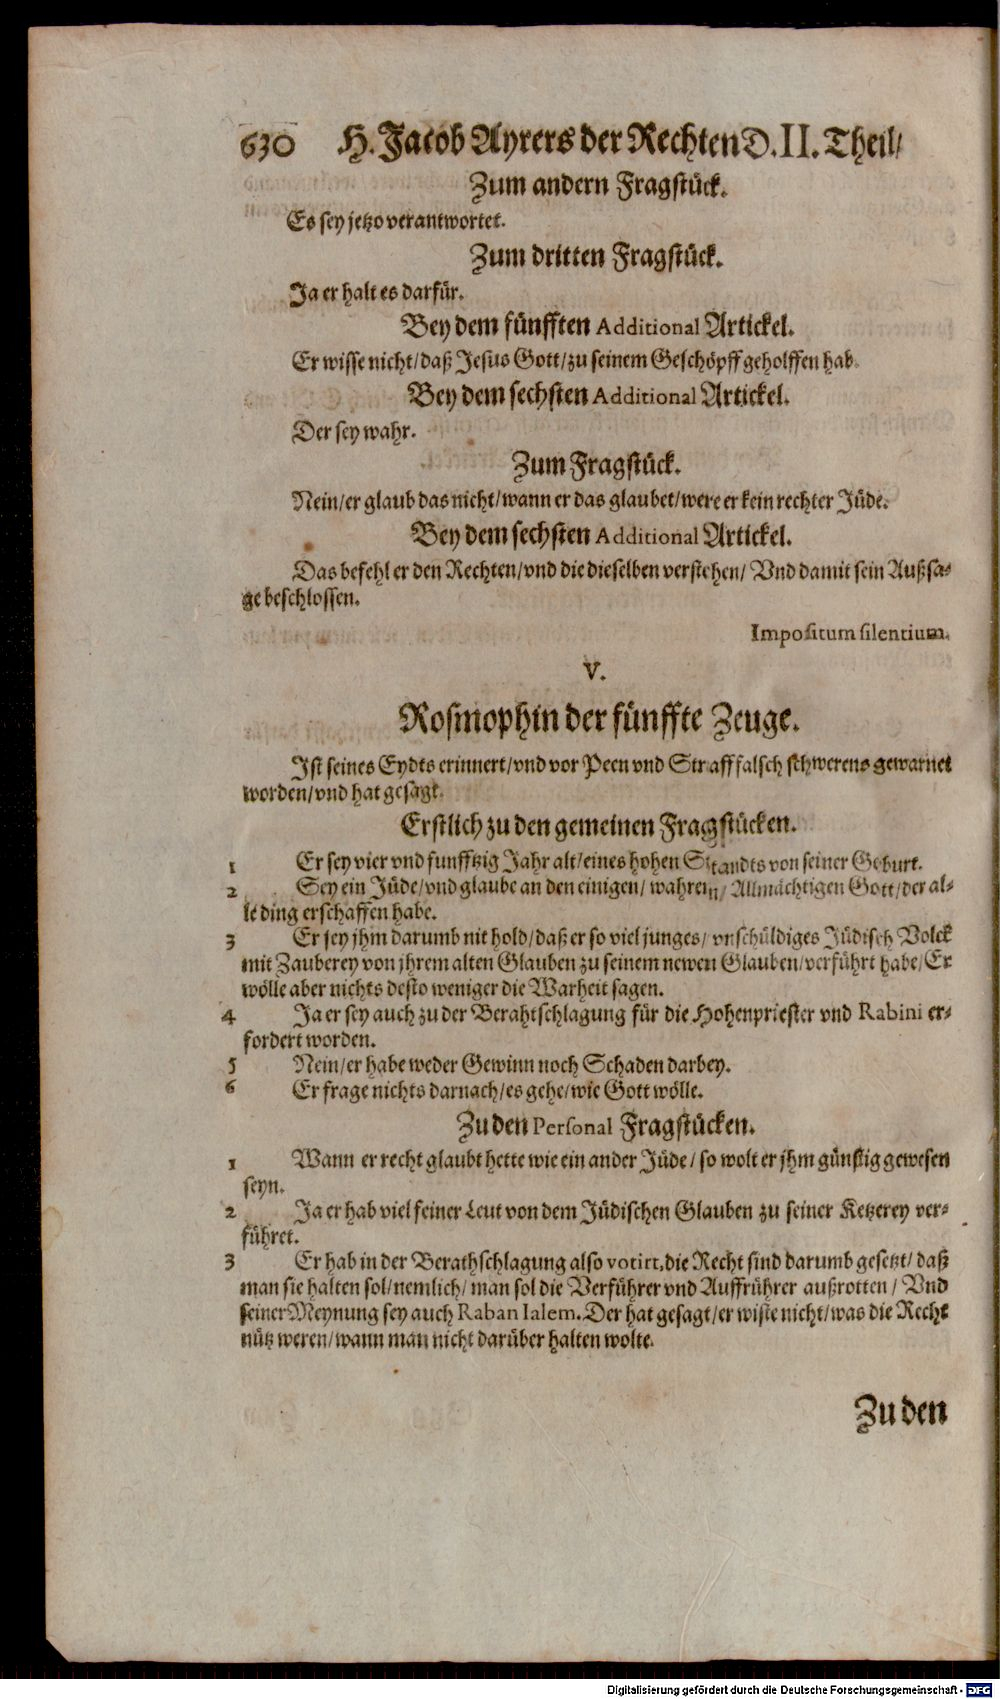 630 H. Jacob Ayrers der Rechten D. II. Theil/
Zum andern Fragstück.
Es sey jetzo verantwortet.
Zum dritten Fragstück.
Ja er halt es darfür.
Bey dem fünfften Additional Artickel.
Er wisse nicht/daß Jesus Gott/zu seinem Geschöpff geholffen hab.
Bey dem sechsten Additional Artickel.
Der sey wahr.
Zum Fragstück.
Nein/er glaub das nicht/wann er das glaubet/were er kein rechter Jüde.
Bey dem sechsten Additional Artickel.
Das befehl er den Rechten/vnd die dieselben verstehen/ Vnd damit sein Außsa-
ge beschlossen.
Impositum silentium.
V.
Rosmophin der fünffte Zeuge.
Ist seines Eydts erinnert/vnd vor Peen vnd Straff falsch schwerens gewarnet
worden/vnd hat gesagt.
Erstlich zu den gemeinen Fragstücken.
1 Er sey vier vnd funfftzig Jahr alt/eines hohen Standts von seiner Geburt.
2 Sey ein Jüde/vnd glaube an den einigen/ wahren/ Allmächtigen Gott/der al-
le ding erschaffen habe.
3 Er sey jhm darumb nit hold/daß er so viel junges/ vnschüldiges Jüdisch Volck
mit Zauberey von jhrem alten Glauben zu seinem newen Glauben/verführt habe/Er
wölle aber nichts desto weniger die Warheit sagen.
4 Ja er sey auch zu der Berahtschlagung für die Hohenpriester vnd Rabini er-
fordert worden.
5 Nein/er habe weder Gewinn noch Schaden darbey.
6 Er frage nichts darnach/es gehe/wie Gott wölle.
Zu den Personal Fragstücken.
1 Wann er recht glaubt hette wie ein ander Jüde/ so wolt er jhm günstig gewesen
seyn.
2 Ja er hab viel feiner Leut von dem Jüdischen Glauben zu seiner Ketzerey ver-
führet.
3 Er hab in der Berathschlagung also votirt, die Recht sind darumb gesetzt/ daß
man sie halten sol/nemlich/ man sol die Verführer vnd Auffrührer außrotten/ Vnd
seiner Meynung sey auch Raban Ialem. Der hat gesagt/er wiste nicht/was die Recht
nütz weren/wann man nicht darüber halten wolte.
Zu den
Digitalisierung gefördert durch die Deutsche Forschungsgemeinschaft - DFG